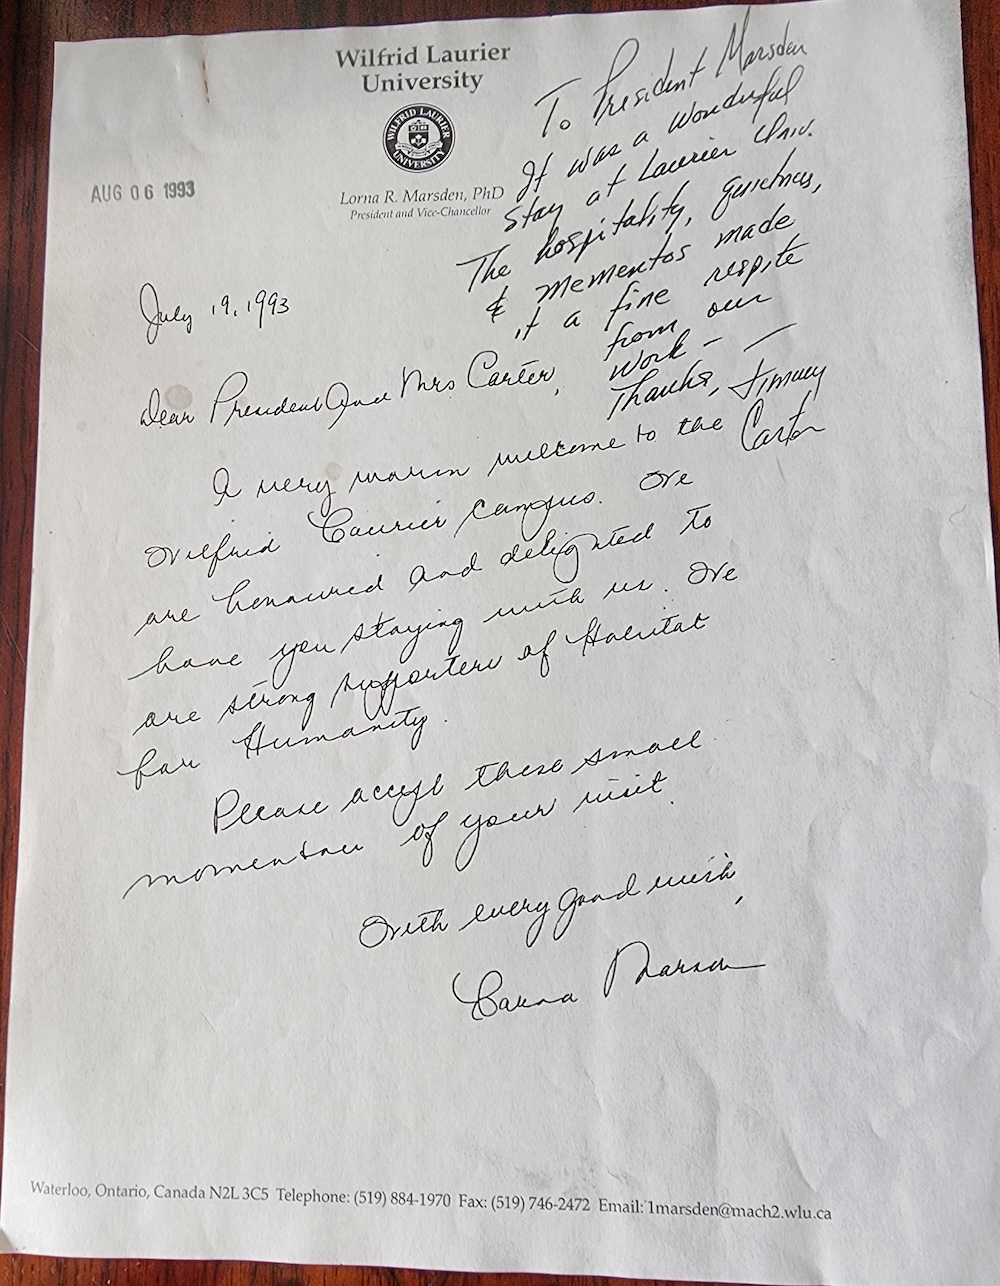 Wilfrid Laurier
University
WILFRID LAURIER
UNIVERSITY
Lorna R. Marsden, PhD
President and Vice-Chancellor
AUG 06 1993
To President Marsden
It was a wonderful
stay at Laurier Univ.
The hospitality, quietness,
& mementos made
it a fine respite
from our
work -
Thanks, Jimmy
Carter
July 19, 1993
Dear President and Mrs Carter,
A very warm welcome to the
Wilfrid Laurier campus. We
are honoured and delighted to
have you staying with us. We
are strong supporters of Habitat
for Humanity.
Please accept these small
momentos of your visit.
With every good wish,
Lorna Marsden
Waterloo, Ontario, Canada N2L 3C5 Telephone: (519) 884-1970 Fax: (519) 746-2472 Email: 1marsden@mach2.wlu.ca